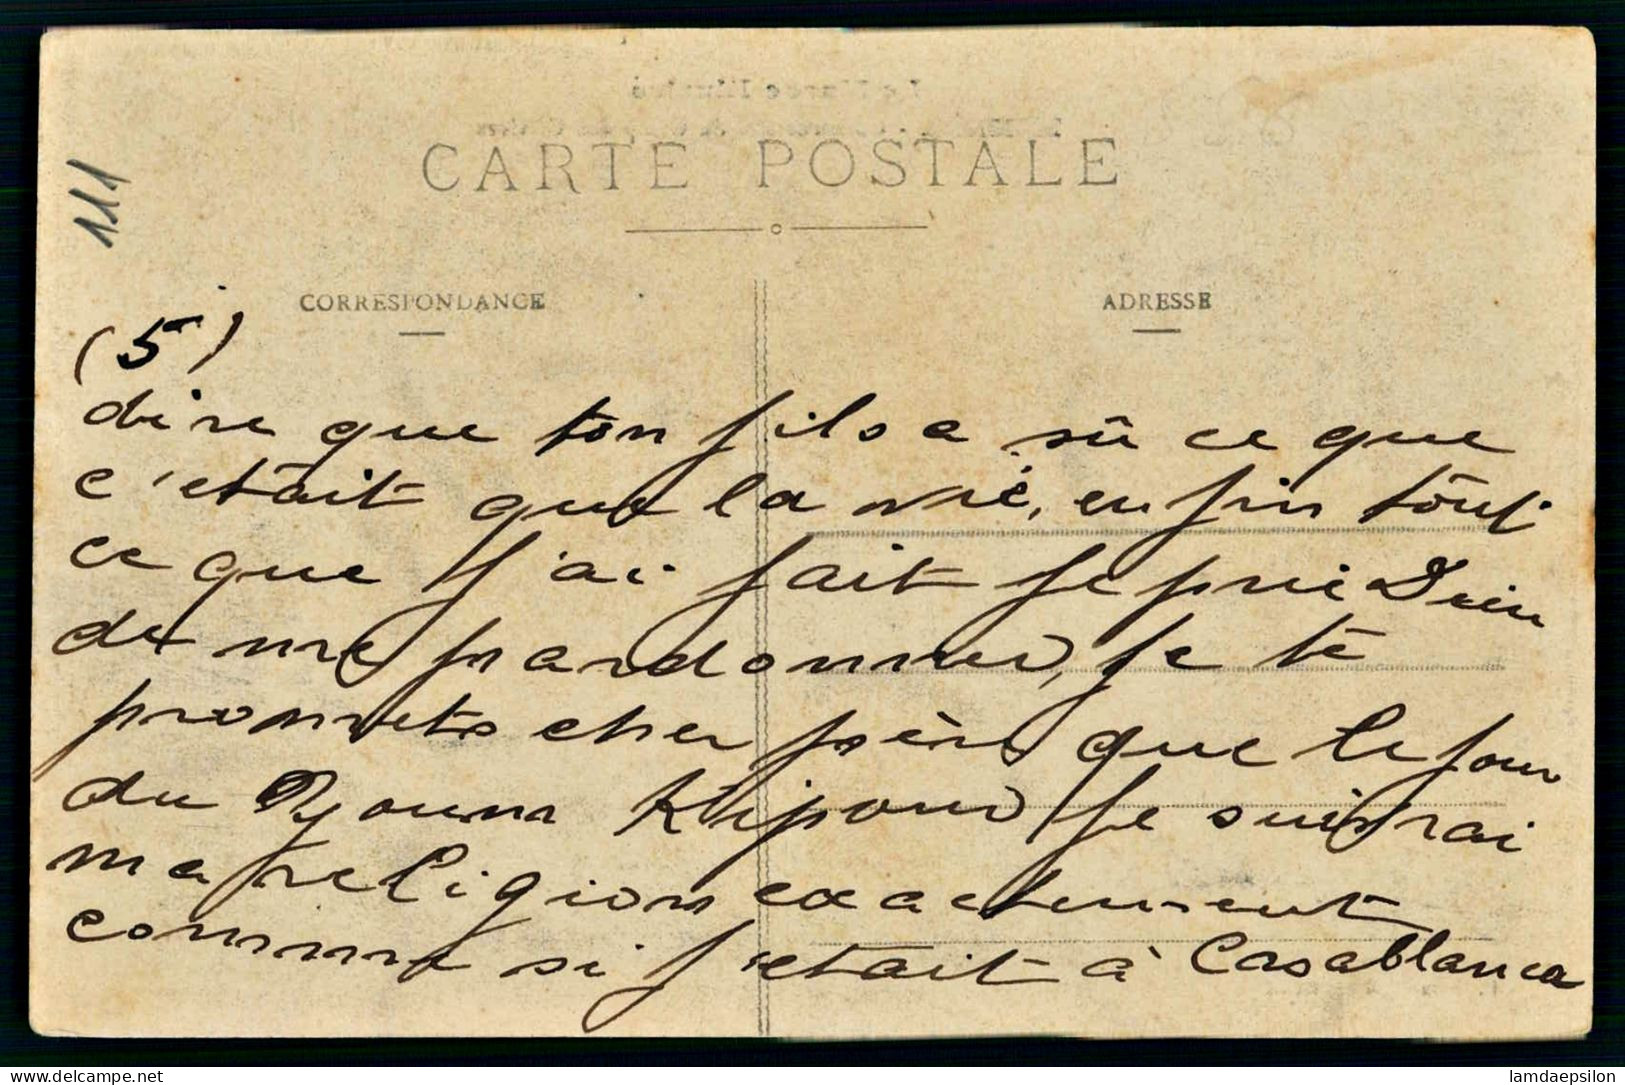 CARTE POSTALE
111
CORRESPONDANCE
ADRESSE
(5)
dire que ton fils a sû ce que
c'etait que la vie, enfin tout
ce que j'ai fait je prie Dieu
de me pardonner, je te
promets cher père que le jour
du Youm Kipour je suivrai
ma religion exactement
comme si j'etait à Casablanca
lamdaepsilon